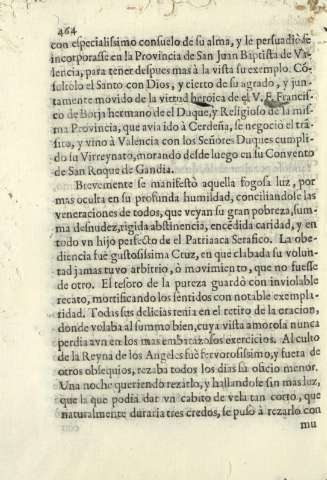 464
con especialissimo consuelo de su alma, y le persuadio se
incorporasse en la Provincia de San Juan Baptista de Va-
lencia, para tener despues mas à la vista su exemplo. Có-
sultòlo el Santo con Dios, y cierto de su agrado, y jun-
tamente movido de la virtud heroica de el V. F. Francis-
co de Borja hermano de el Duque, y Religioso de la mis-
ma Provincia, que avia ido à Cerdeña, se negociò el trà-
sito, y vino à Valencia con los Señores Duques cumpli-
do su Virreynato, morando desde luego en su Convento
de San Roque de Gandia.
Brevemente se manifestò aquella fogosa luz, por
mas oculta en su profunda humildad, conciliandole las
veneraciones de todos, que veyan su gran pobreza, sum-
ma desnudez, rigida abstinencia, encédida caridad, y en
todo vn hijo perfecto de el Patriaaca Serafico. La obe-
diencia fuè gustosissima Cruz, en que clabada su volun-
tad jamas tuvo arbitrio, ò movimiento, que no fuesse
de otro. El tesoro de la pureza guardò con inviolable
recato, mortificando los sentidos con notable exempla-
ridad. Todas sus delicias tenia en el retiro de la oracion,
donde volaba al summo bien, cuya vista amorosa nunca
perdia avn en los mas embarazosos exercicios. Al culto
de la Reyna de los Angeles fuè fervorosissimo, y fuera de
otros obsequios, rezaba todos los dias su oficio menor.
Una noche queriendo rezarlo, y hallandose sin mas luz,
que la que podia dar vn cabito de vela tan corto, que
naturalmente duraria tres credos, se puso à rezarlo con
mu